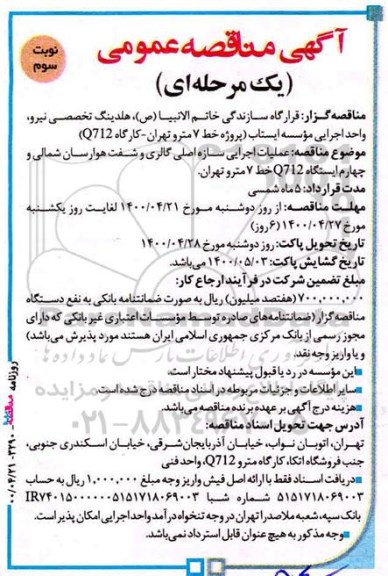 آگهی مناقصه عمومی
نوبت
سوم
(یک مرحله‌ای)
مناقصه گزار: قرارگاه سازندگی خاتم الانبیا (ص)، هلدینگ تخصصی نیرو،
واحد اجرایی مؤسسه ایستاب (پروژه خط ۷ مترو تهران-کارگاه Q712)
موضوع مناقصه: عملیات اجرایی سازه اصلی گالری و شفت هوارسان شمالی و
چهارم ایستگاه Q712 خط ۷ مترو تهران.
مدت قرارداد: ۵ ماه شمسی
مهلت مناقصه: از روز دوشنبه مورخ ۱۴۰۰/۰۴/۲۱ لغایت روز یکشنبه
مورخ ۱۴۰۰/۰۴/۲۷ (۶ روز)
تاریخ تحویل پاکت: روز دوشنبه مورخ ۱۴۰۰/۰۴/۲۸
تاریخ گشایش پاکت: ۱۴۰۰/۰۵/۰۳ می‌باشد.
مبلغ تضمین شرکت در فرآیند ارجاع کار:
۷۰۰,۰۰۰,۰۰۰ (هفتصد میلیون) ریال به صورت ضمانتنامه بانکی به نفع دستگاه
مناقصه گزار (ضمانتنامه‌های صادره توسط مؤسسات اعتباری غیر بانکی که دارای
مجوز رسمی از بانک مرکزی جمهوری اسلامی ایران هستند مورد پذیرش می‌باشد)
و یا واریز وجه نقد.
این مؤسسه در رد یا قبول پیشنهاد مختار است.
سایر اطلاعات و جزئیات مربوطه در اسناد مناقصه درج شده است.
هزینه درج آگهی بر عهده برنده مناقصه می‌باشد.
آدرس جهت تحویل اسناد مناقصه:
تهران، اتوبان نواب، خیابان آذربایجان شرقی، خیابان اسکندری جنوبی،
جنب فروشگاه اتکا، کارگاه مترو Q712، واحد فنی
دریافت اسناد فقط با ارائه اصل فیش واریز وجه مبلغ ۱,۰۰۰,۰۰۰ ریال به حساب
۵۱۵۱۷۱۸۰۶۹۰۰۳ شماره شبا IR۷۴۰۱۵۰۰۰۰۰۵۱۵۱۷۱۸۰۶۹۰۰۳
بانک سپه، شعبه ملاصدرا تهران در وجه تنخواه درآمد واحد اجرایی امکان پذیر است.
وجه مذکور به هیچ عنوان قابل استرداد نمی‌باشد.
روزنامه مناقصه
۰۰/۰۴/۲۱-۲۲۹۰